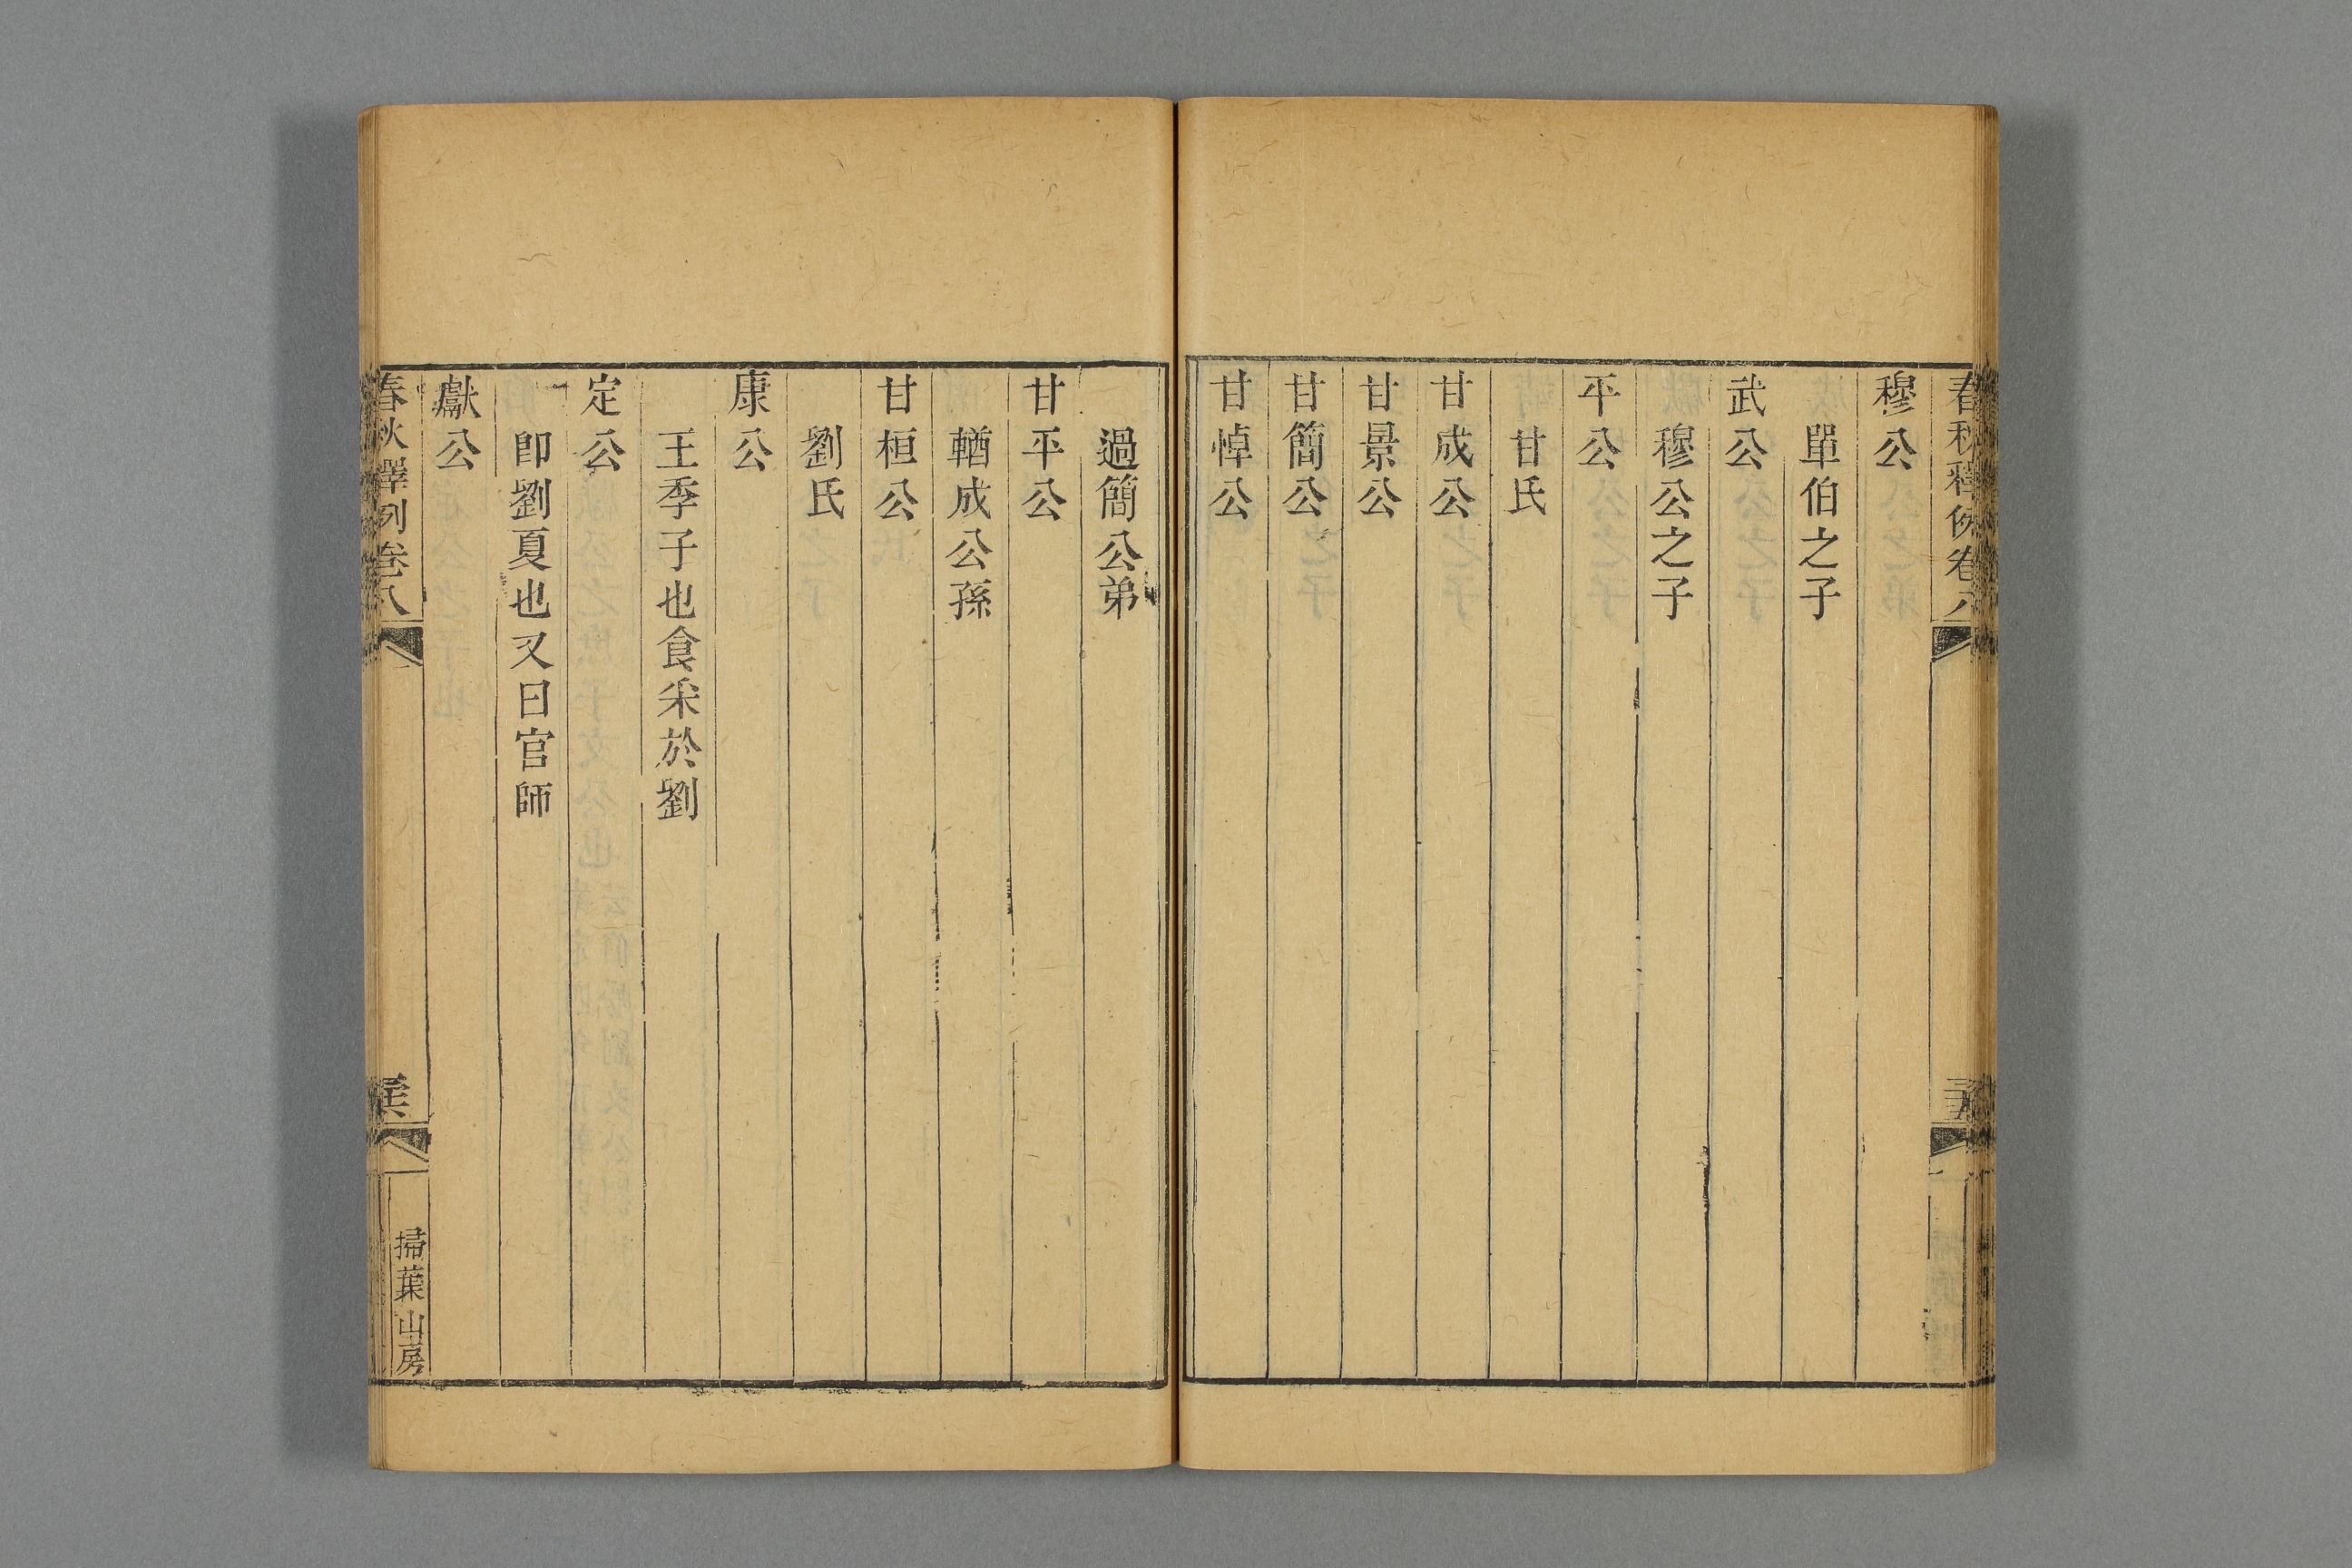 春秋釋例卷八
穆公
單伯之子
武公
穆公之子
平公
甘氏
甘成公
甘景公
甘簡公
甘悼公
過簡公弟
甘平公
輶成公孫
甘桓公
劉氏
康公
王季子也食采於劉
定公
卽劉夏也又曰官師
獻公
春秋釋例卷八
掃葉山房